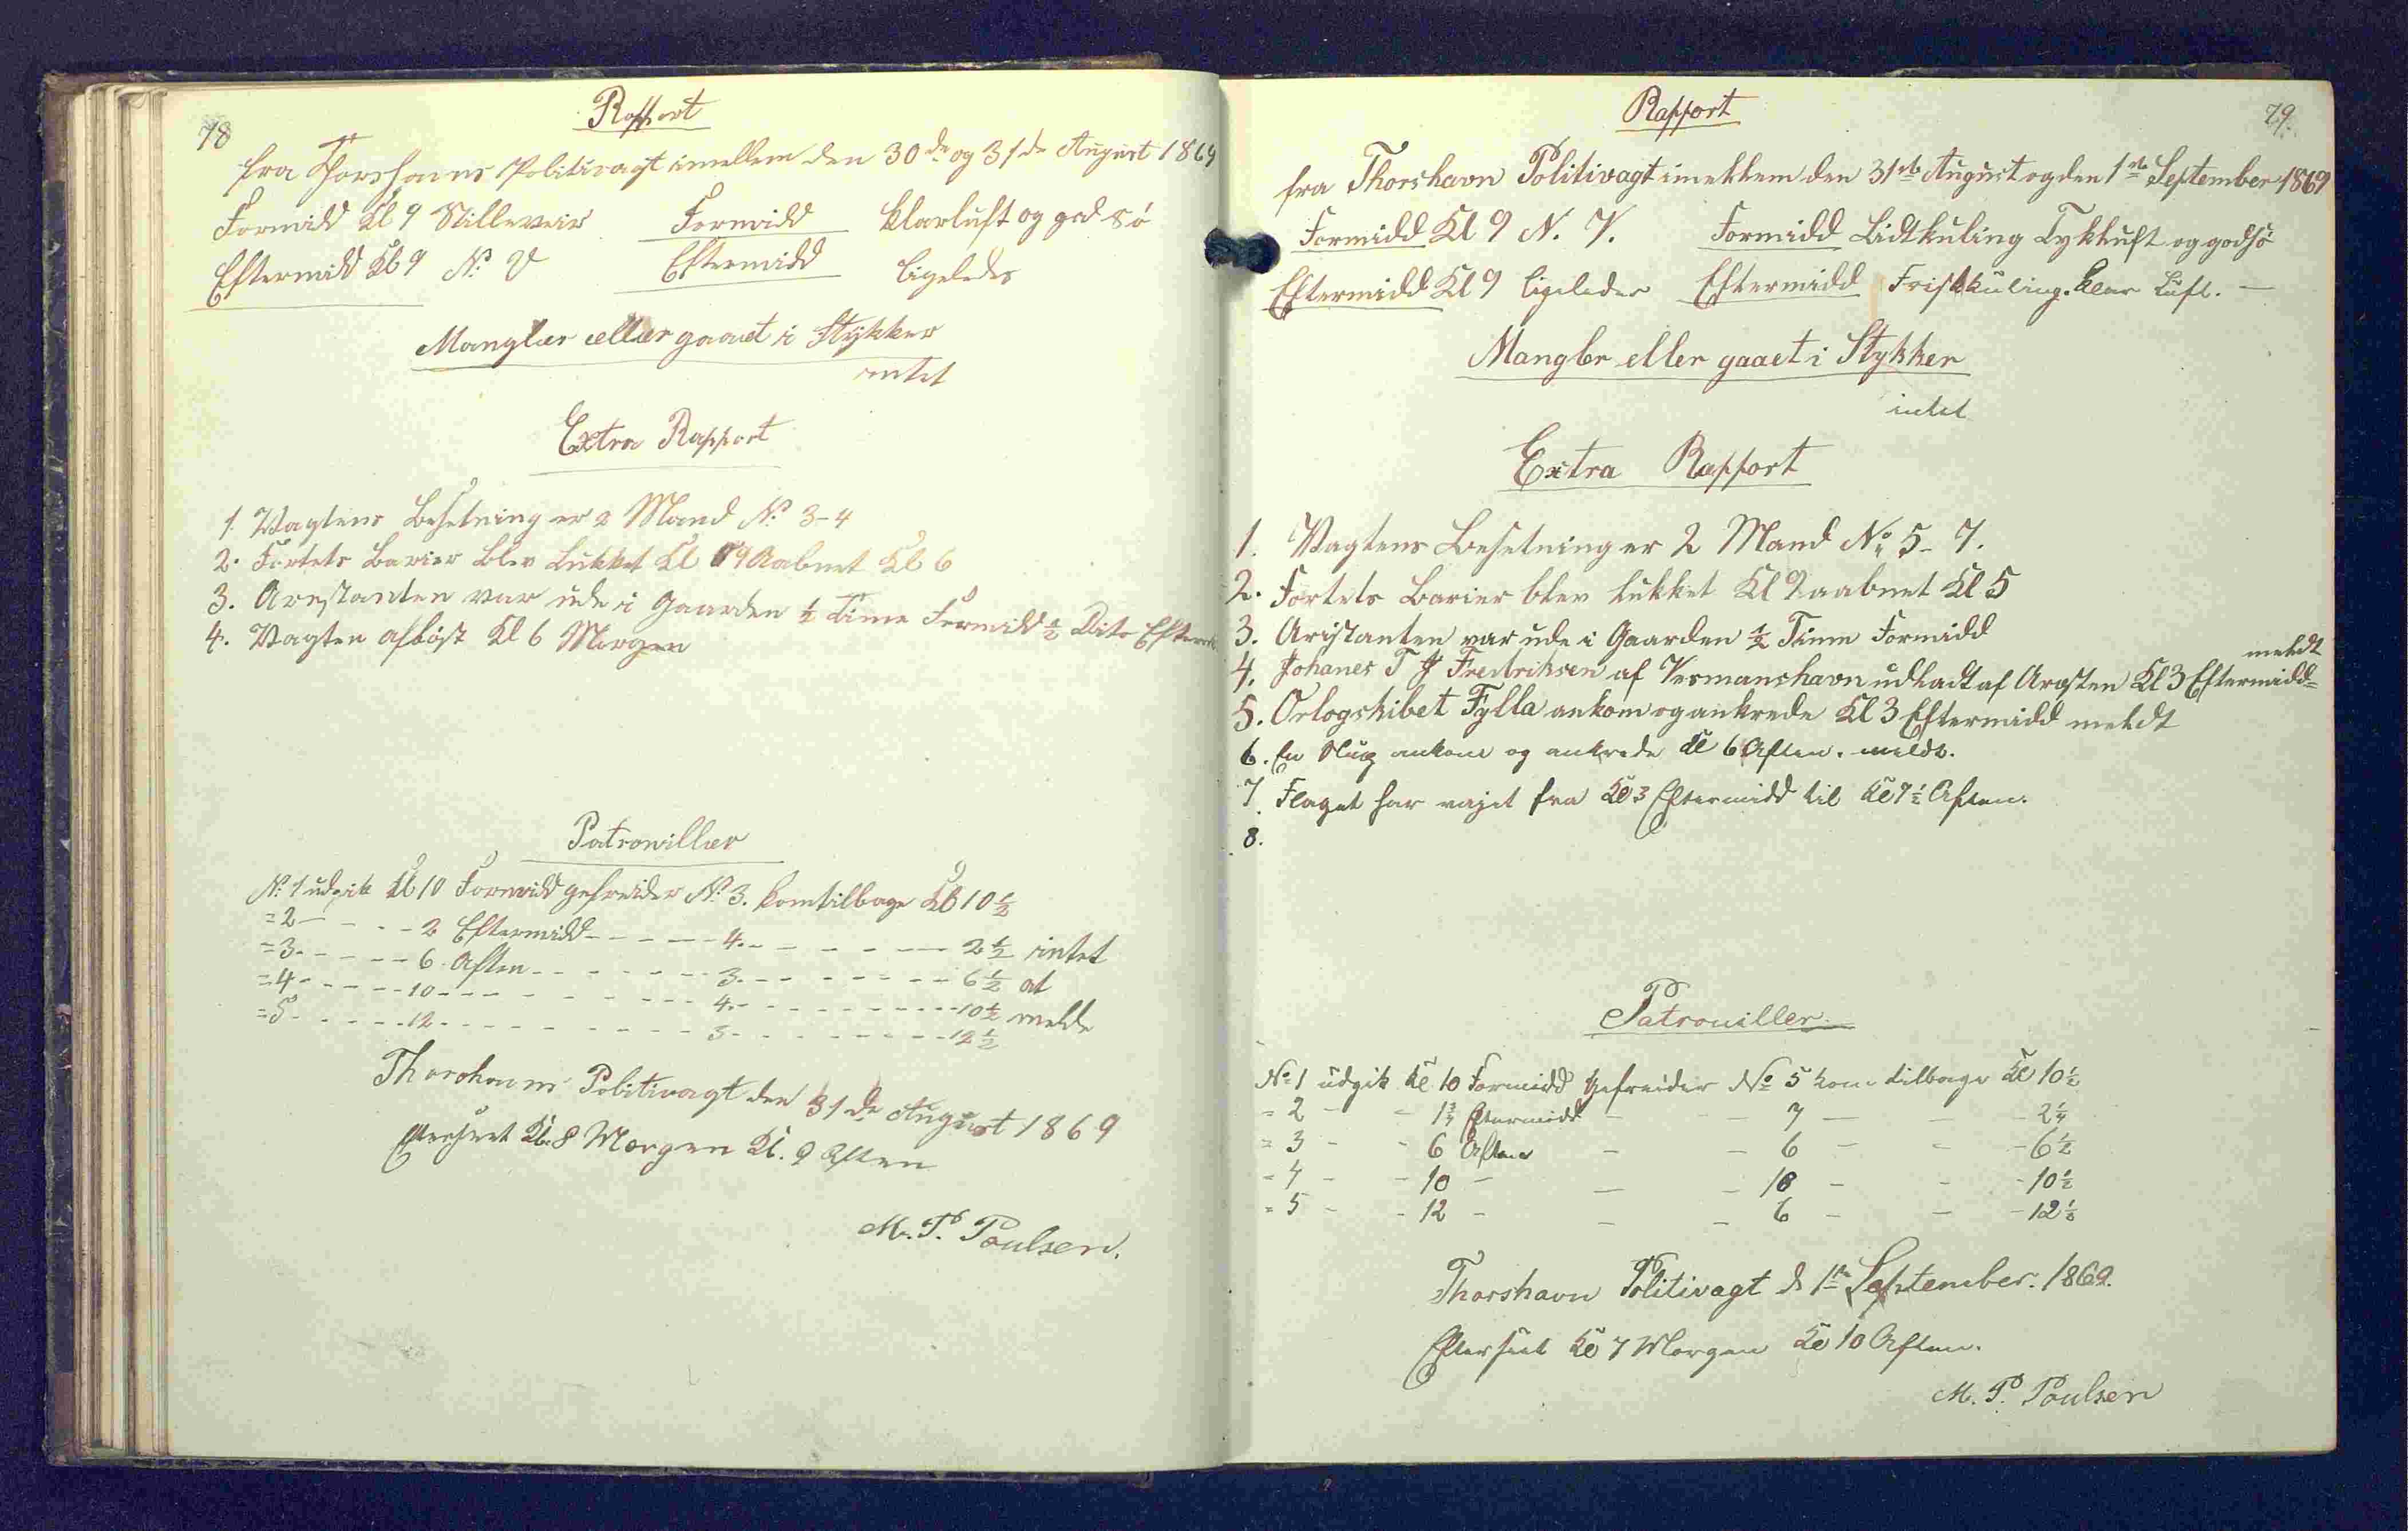 78
Rapport
fra Thorshavns Politivagt imellem den 30de og 31de August 1869
Formidd Kl 9 Stilleveir Formidd Klarluft og god Sö
Eftermidd Kl 9 N. V Eftermidd ligeledes
Mangler eller gaaet i Stykker
intet
Extra Rapport
1. Vagtens Besetning er 2 Mand No 3-4
2. Fortets Barier blev Lukket Kl 9 Aabnet Kl 6
3. Arestanten var ude i Gaarden ½ Time Formidd ½ Dito Efterm
4. Vagten aflöst Kl 6 Morgen
Patrouiller
No 1 udgik Kl 10 Formidd gefreider No 3. kom tilbage Kl 10 ½
= 2 - - - 2 Eftermidd - - - - 4 - - - - - 2 ½ intet
= 3 - - - - 6 Aften - - - - - 3 - - - - - 6 ½ at
= 4 - - - - 10 - - - - - - - 4 - - - - - 10 ½ melde
= 5 - - - - 12 - - - - - - - 3 - - - - - 12 ½
Thorshavns Politivagt den 31de August 1869
Efterseet Kl. 8 Morgen Kl. 9 Aften
M. P. Poulsen.
79.
Rapport
fra Thorshavn Politivagt imellem den 31te August og den 1te September 1869
Formidd Kl 9 N. V. Formidd Lidt kuling Tykluft og god sö
Eftermidd Kl 9 ligeledes Eftermidd Frisk kuling. klar Luft. —
Mangler eller gaaet i Stykker
intet
Extra Rapport
1. Vagtens Besetning er 2 Mand No 5 - 7.
2. Fortets Barier blev lukket Kl 9 aabnet Kl 5
3. Aristanten var ude i Gaarden ½ Time Formidd
meldt
4. Johanes T J Fredriksen af Vesmanshavn udladt af Aresten Kl 3 Eftermidd =
5. Orlogskibet Fylla ankom og ankrede Kl 3 Eftermidd meldt
6. En Slup ankom og ankrede Kl 6 Aften. meldt.
7. Flaget har vajet fra Kl 3 Eftermidd til Kl 7 ½ Aften.
8.
Patrouiller.
No 1 udgik Kl 10 Formidd Gefreider No 5 kom tilbage Kl 10 ½
= 2 - - 1 ¾ Eftermidd - - 7 - - - 2 ¼
= 3 - - 6 Aften - - 6 - - - 6 ½
= 4 - - 10 - - - 10 - - - 10 ½
= 5 - - 12 - - - 6 - - - 12 ½
Thorshavn Politivagt d 1te September. 1869.
Efterseet Kl 7 Morgen Kl 10 Aften.
M. P. Poulsen